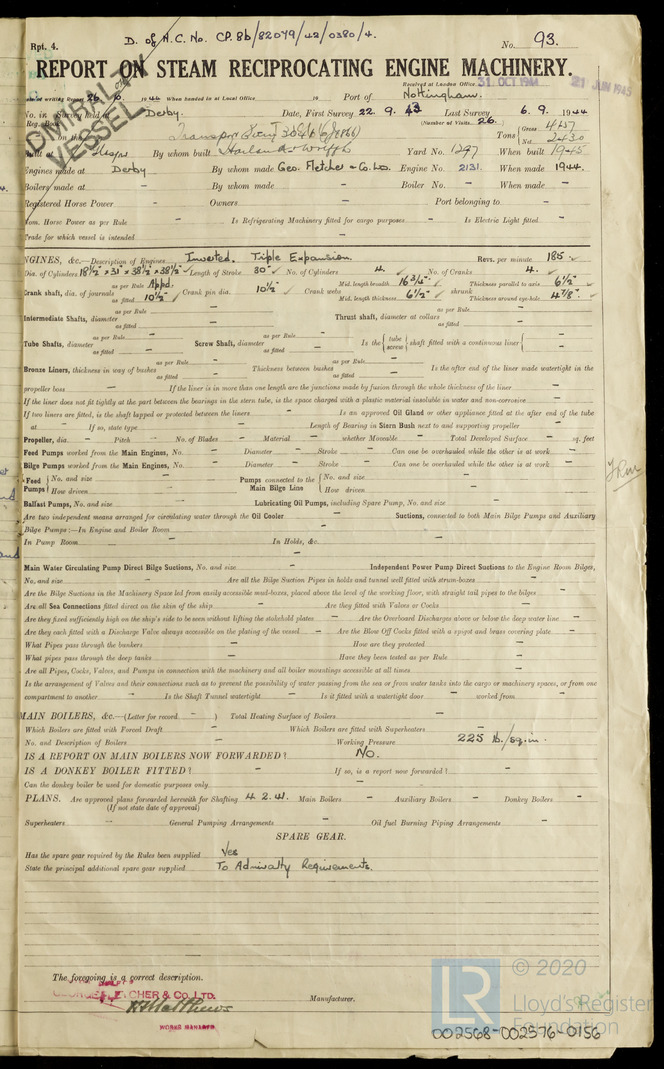 Rpt. 4.
D. of N.C. No. CP.8b/82079/42/0380/4.
No. 93.
REPORT ON STEAM RECIPROCATING ENGINE MACHINERY.
Received at London Office 31 OCT 1944 21 JUN 1945
of writing Report 26. 10. 1944 When handed in at Local Office 19 Port of Nottingham.
ADMIRALTY VESSEL
No. in Survey held at Derby. Date, First Survey 22. 9. 43 Last Survey 6. 9. 1944
Reg. Book. (Number of Visits 26.)
on the Tons Gross 4157 Net 2430
Built at By whom built Harland & Wolff Yard No. 1297 When built 1945
Engines made at Derby By whom made Geo. Fletcher & Co. Ld. Engine No. 2131. When made 1944.
Boilers made at — By whom made — Boiler No. — When made —
Registered Horse Power — Owners — Port belonging to —
Nom. Horse Power as per Rule — Is Refrigerating Machinery fitted for cargo purposes — Is Electric Light fitted —
Trade for which vessel is intended —
ENGINES, &c.—Description of Engines Inverted. Triple Expansion. Revs. per minute 185
Dia. of Cylinders 18½" × 31" × 38½" × 38½" Length of Stroke 30" No. of Cylinders 4. No. of Cranks 4.
Crank shaft, dia. of journals as per Rule Appd. as fitted 10½" Crank pin dia. 10½" Crank webs Mid. length breadth 16¾" Mid. length thickness 6½" shrunk Thickness parallel to axis 6½" Thickness around eye-hole 4⅞"
Intermediate Shafts, diameter as per Rule — as fitted Thrust shaft, diameter at collars as per Rule — as fitted
Tube Shafts, diameter as per Rule — as fitted Screw Shaft, diameter as per Rule — as fitted Is the { tube screw } shaft fitted with a continuous liner { —
Bronze Liners, thickness in way of bushes as per Rule — as fitted Thickness between bushes as per Rule — as fitted Is the after end of the liner made watertight in the
propeller boss — If the liner is in more than one length are the junctions made by fusion through the whole thickness of the liner —
If the liner does not fit tightly at the part between the bearings in the stern tube, is the space charged with a plastic material insoluble in water and non-corrosive —
If two liners are fitted, is the shaft lapped or protected between the liners — Is an approved Oil Gland or other appliance fitted at the after end of the tube
at — If so, state type — Length of Bearing in Stern Bush next to and supporting propeller —
Propeller, dia. — Pitch — No. of Blades — Material — whether Moveable — Total Developed Surface — sq. feet
Feed Pumps worked from the Main Engines, No. — Diameter — Stroke — Can one be overhauled while the other is at work —
Bilge Pumps worked from the Main Engines, No. — Diameter — Stroke — Can one be overhauled while the other is at work —
Feed Pumps { No. and size — How driven — Pumps connected to the Main Bilge Line { No. and size — How driven —
Ballast Pumps, No. and size — Lubricating Oil Pumps, including Spare Pump, No. and size —
Are two independent means arranged for circulating water through the Oil Cooler — Suctions, connected to both Main Bilge Pumps and Auxiliary
Bilge Pumps:—In Engine and Boiler Room —
In Pump Room — In Holds, &c. —
Main Water Circulating Pump Direct Bilge Suctions, No. and size — Independent Power Pump Direct Suctions to the Engine Room Bilges,
No. and size — Are all the Bilge Suction Pipes in holds and tunnel well fitted with strum-boxes —
Are the Bilge Suctions in the Machinery Space led from easily accessible mud-boxes, placed above the level of the working floor, with straight tail pipes to the bilges —
Are all Sea Connections fitted direct on the skin of the ship — Are they fitted with Valves or Cocks —
Are they fixed sufficiently high on the ship's side to be seen without lifting the stokehold plates — Are the Overboard Discharges above or below the deep water line —
Are they each fitted with a Discharge Valve always accessible on the plating of the vessel — Are the Blow Off Cocks fitted with a spigot and brass covering plate —
What Pipes pass through the bunkers — How are they protected —
What pipes pass through the deep tanks — Have they been tested as per Rule —
Are all Pipes, Cocks, Valves, and Pumps in connection with the machinery and all boiler mountings accessible at all times —
Is the arrangement of Valves and their connections such as to prevent the possibility of water passing from the sea or from water tanks into the cargo or machinery spaces, or from one
compartment to another — Is the Shaft Tunnel watertight — Is it fitted with a watertight door — worked from —
MAIN BOILERS, &c.—(Letter for record — ) Total Heating Surface of Boilers —
Which Boilers are fitted with Forced Draft — Which Boilers are fitted with Superheaters —
No. and Description of Boilers — Working Pressure 225 lb./sq.in.
IS A REPORT ON MAIN BOILERS NOW FORWARDED? No.
IS A DONKEY BOILER FITTED? — If so, is a report now forwarded? —
Can the donkey boiler be used for domestic purposes only —
PLANS. Are approved plans forwarded herewith for Shafting 4. 2. 41. Main Boilers — Auxiliary Boilers — Donkey Boilers —
(If not state date of approval)
Superheaters — General Pumping Arrangements — Oil fuel Burning Piping Arrangements —
SPARE GEAR.
Has the spare gear required by the Rules been supplied Yes
State the principal additional spare gear supplied To Admiralty Requirements.
The foregoing is a correct description.
GEORGE FLETCHER & CO. LTD.
Manufacturer.
WORKS MANAGER
LR © 2020 Lloyd's Register Foundation
002568-002576-0156